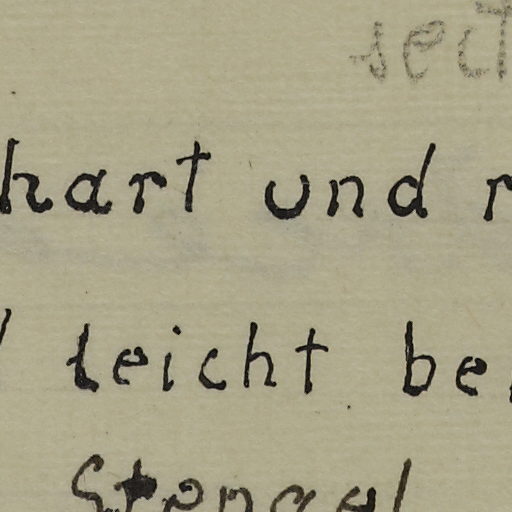 seit
hart und r
leicht be
Stengel